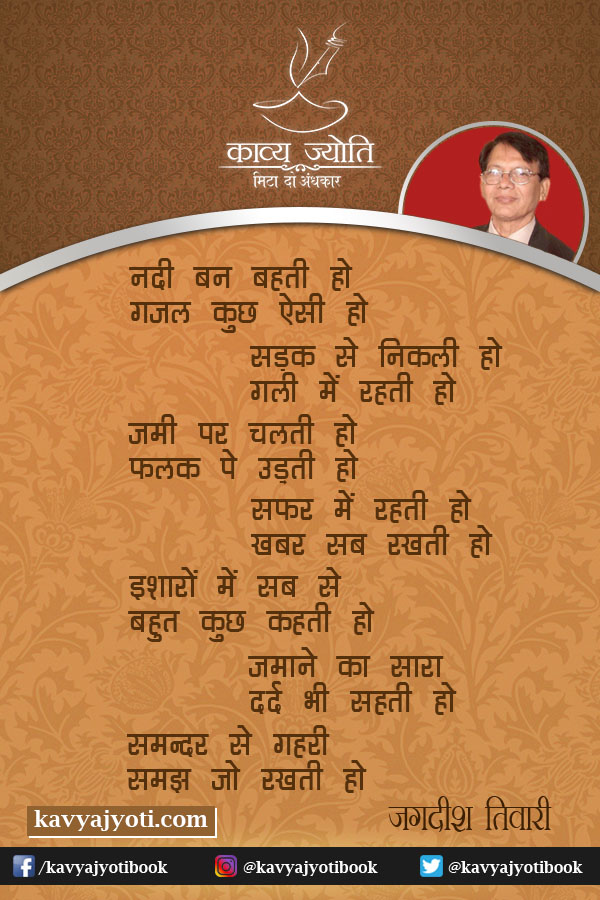 काव्य ज्योति
मिटा दो अंधकार
नदी बन बहती हो
गजल कुछ ऐसी हो
सड़क से निकली हो
गली में रहती हो
जमी पर चलती हो
फलक पे उड़ती हो
सफर में रहती हो
खबर सब रखती हो
इशारों में सब से
बहुत कुछ कहती हो
जमाने का सारा
दर्द भी सहती हो
समन्दर से गहरी
समझ जो रखती हो
जगदीश तिवारी
kavyajyoti.com
/kavyajyotibook @kavyajyotibook @kavyajyotibook